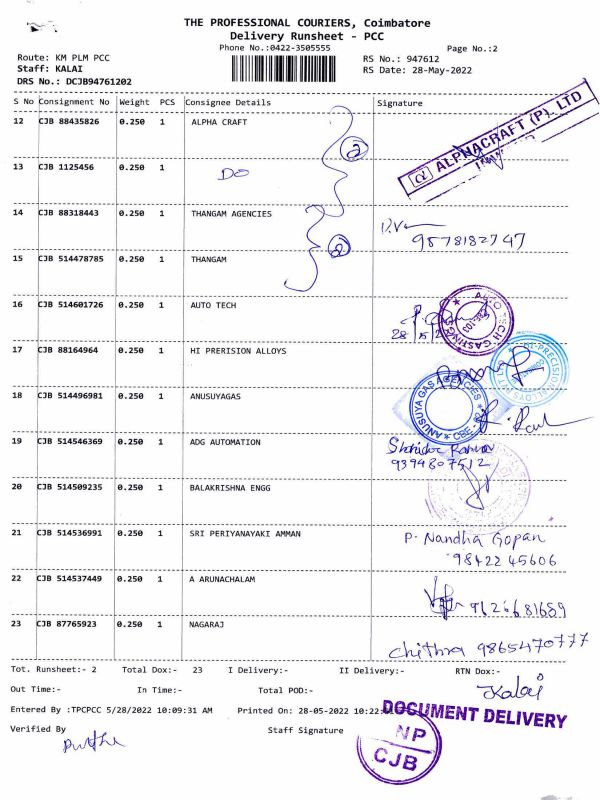 THE PROFESSIONAL COURIERS, Coimbatore
Delivery Runsheet - PCC
Phone No.:0422-3505555
Page No.:2
Route: KM PLM PCC
RS No.: 947612
Staff: KALAI
RS Date: 28-May-2022
DRS No.: DCJB94761202
S No Consignment No Weight PCS Consignee Details Signature
12 CJB 88435826 0.250 1 ALPHA CRAFT
ALPHACRAFT (P). LTD
13 CJB 1125456 0.250 1 DO
2
14 CJB 88318443 0.250 1 THANGAM AGENCIES
9578182747
2
15 CJB 514478785 0.250 1 THANGAM
16 CJB 514601726 0.250 1 AUTO TECH
17 CJB 88164964 0.250 1 HI PRERISION ALLOYS
18 CJB 514496981 0.250 1 ANUSUYAGAS
ANUSUYA GAS AGENCIES
19 CJB 514546369 0.250 1 ADG AUTOMATION
9394807512
20 CJB 514509235 0.250 1 BALAKRISHNA ENGG
21 CJB 514536991 0.250 1 SRI PERIYANAYAKI AMMAN
P. Nandha Gopan
9842245606
22 CJB 514537449 0.250 1 A ARUNACHALAM
9626681689
23 CJB 87765923 0.250 1 NAGARAJ
Chithra 9865470777
Tot. Runsheet:- 2 Total Dox:- 23 I Delivery:- II Delivery:- RTN Dox:-
Out Time:- In Time:- Total POD:-
Kalai
Entered By :TPCPCC 5/28/2022 10:09:31 AM Printed On: 28-05-2022 10:22
DOCUMENT DELIVERY
Verified By Staff Signature
NP
CJB